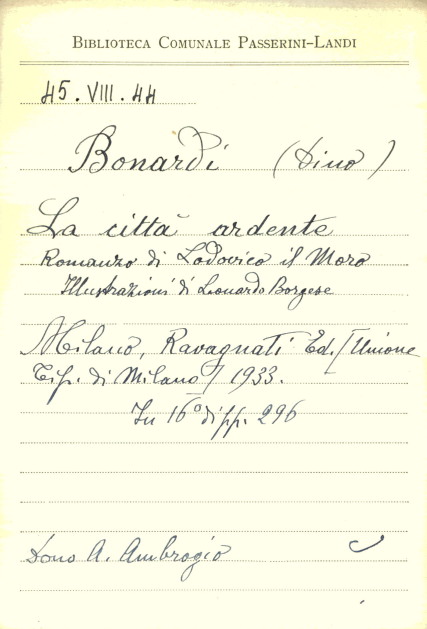 BIBLIOTECA COMUNALE PASSERINI-LANDI
45.VIII.44
Bonardi (Dino)
La città ardente
Romanzo di Lodovico il Moro
Illustrazioni di Leonardo Borgese
Milano, Ravagnati Ed. /Unione
Tip. di Milano/ 1933.
In 16° di pp. 296
Dono A. Ambrogio